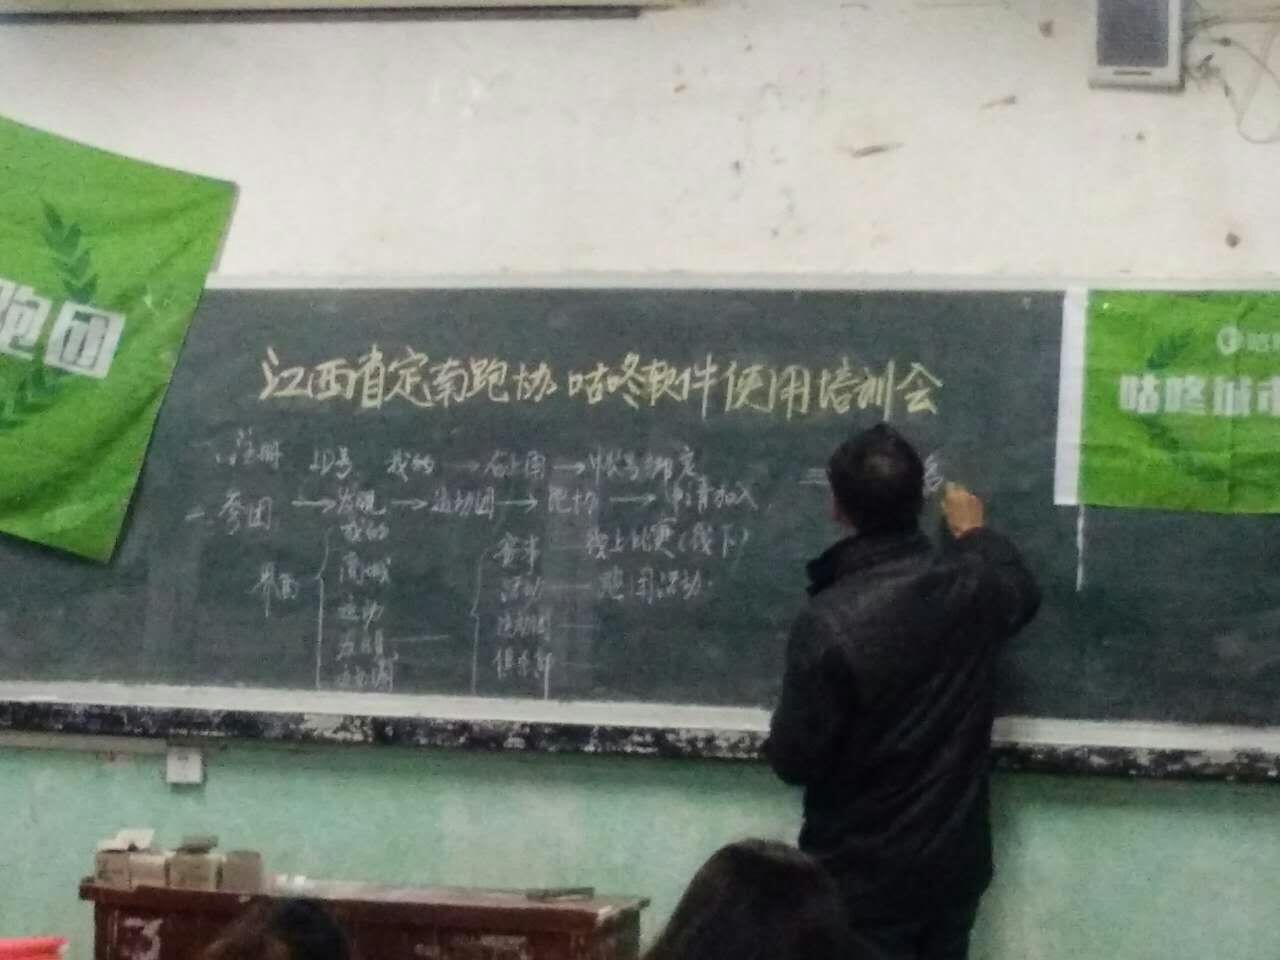 跑团
江西省定南跑协咕咚软件使用培训会
咕咚城市
一注册 ID号 我的→右上角→
二参团→发现→运动团→跑协→申请加入
界面
我的
商城
运动
发现
运动圈
赛事 线上比赛(线下)
活动——跑团活动
运动团
俱乐部
3